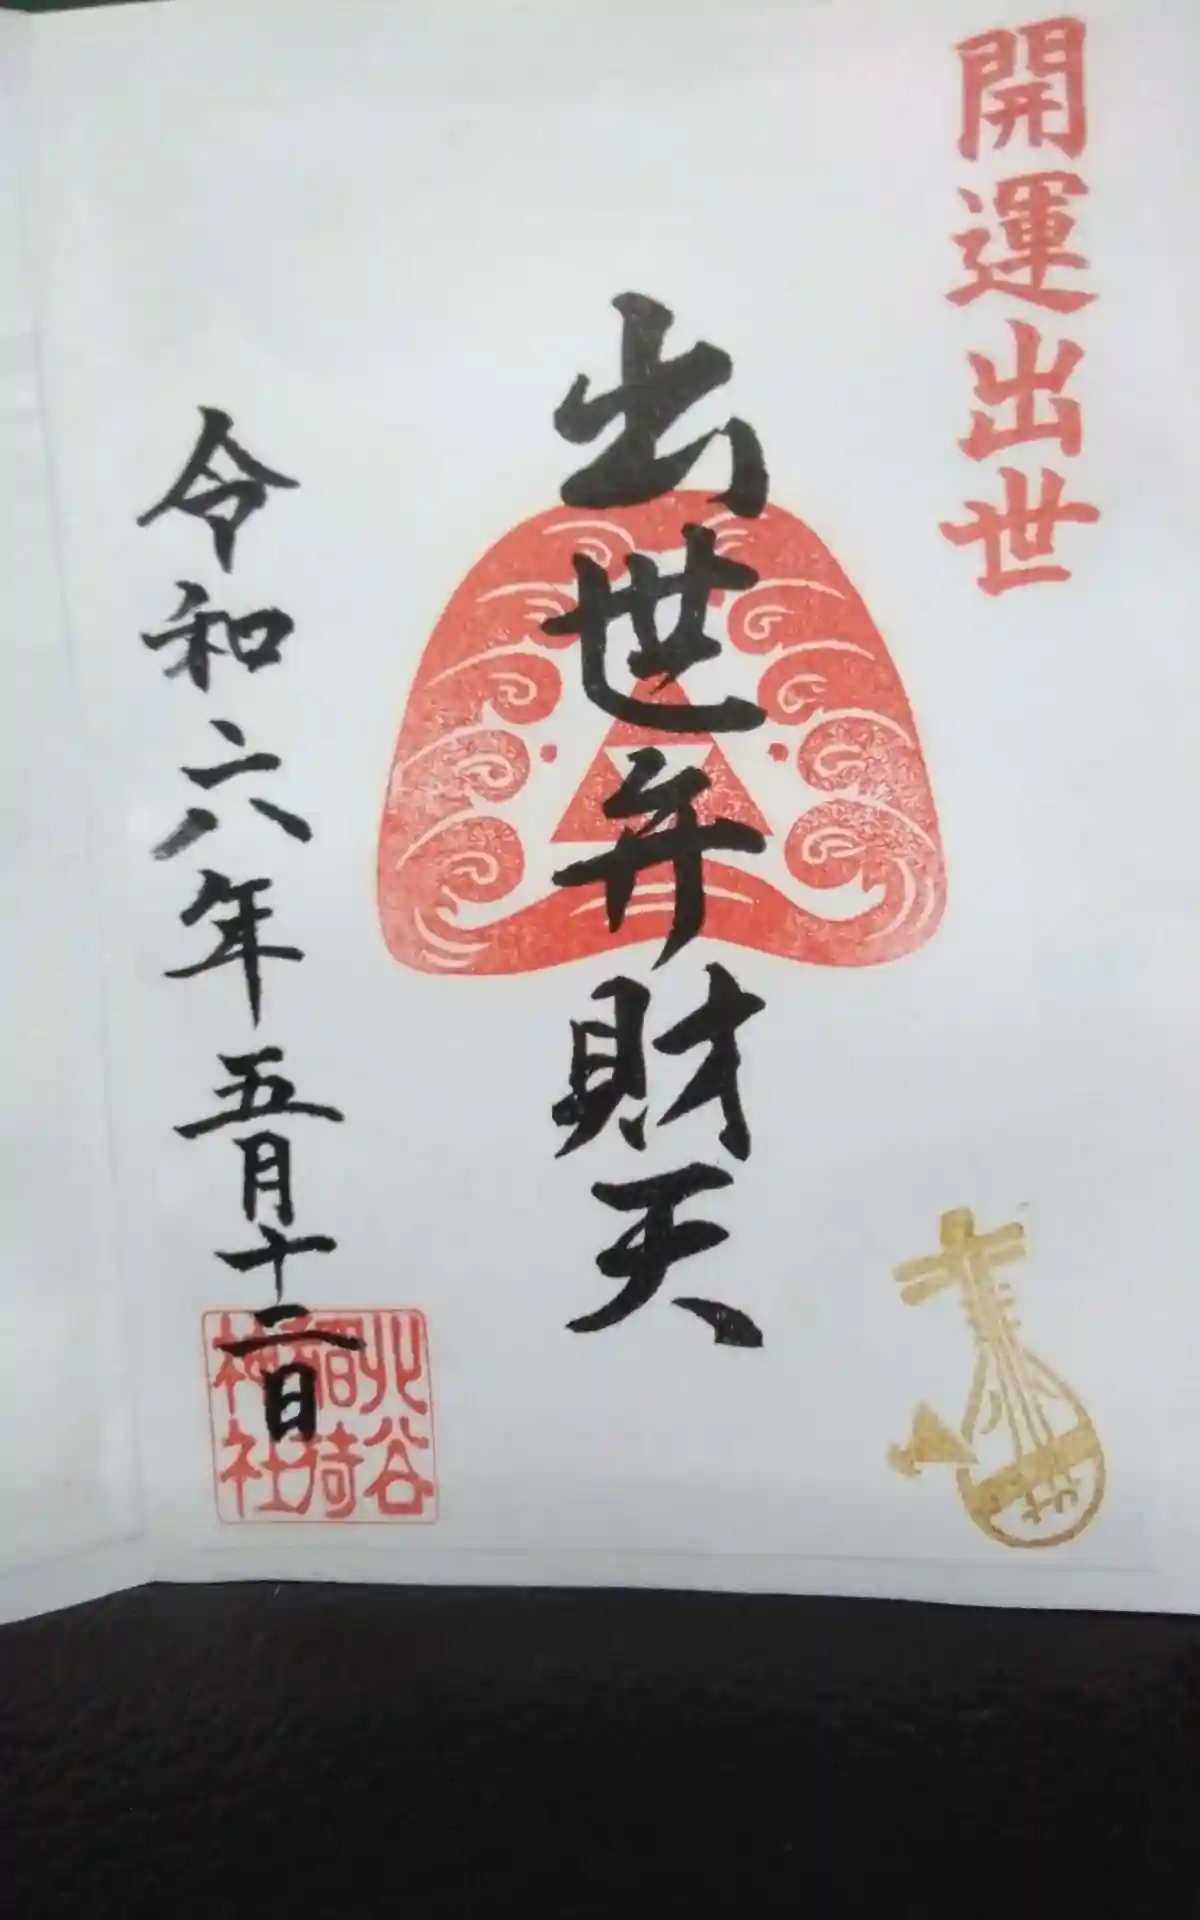 開運出世
出世弁財天
令和六年五月十二日
北谷
稲荷
神社